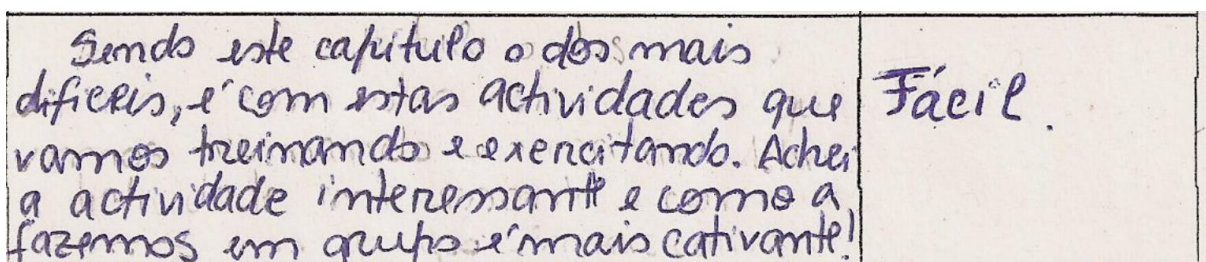 Sendo este capitulo o dos mais
dificeis, é com estas actividades que
vamos treinando e exercitando. Achei
a actividade interessante e como a
fazemos em grupo é mais cativante!
Fácil.